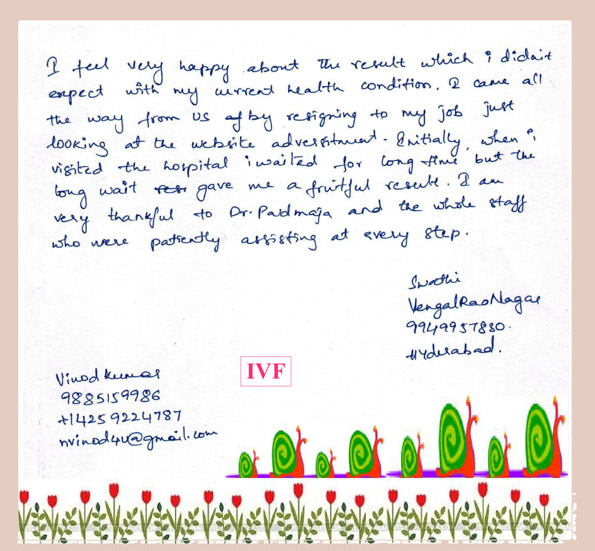 I feel very happy about the result which i didn't
expect with my current health condition. I came all
the way from US by resigning to my job just
looking at the website advertstment. Initially, when i
visited the hospital i waited for long time but the
long wait gave me a fruitful result. I am
very thankful to Dr. Padmaja and the whole staff
who were patiently assisting at every step.
Swathi
VengalRaoNagar
9949957830.
Hyderabad.
IVF
Vinod Kumar
9885159986
+14259224787
nvinod4u@gmail.com